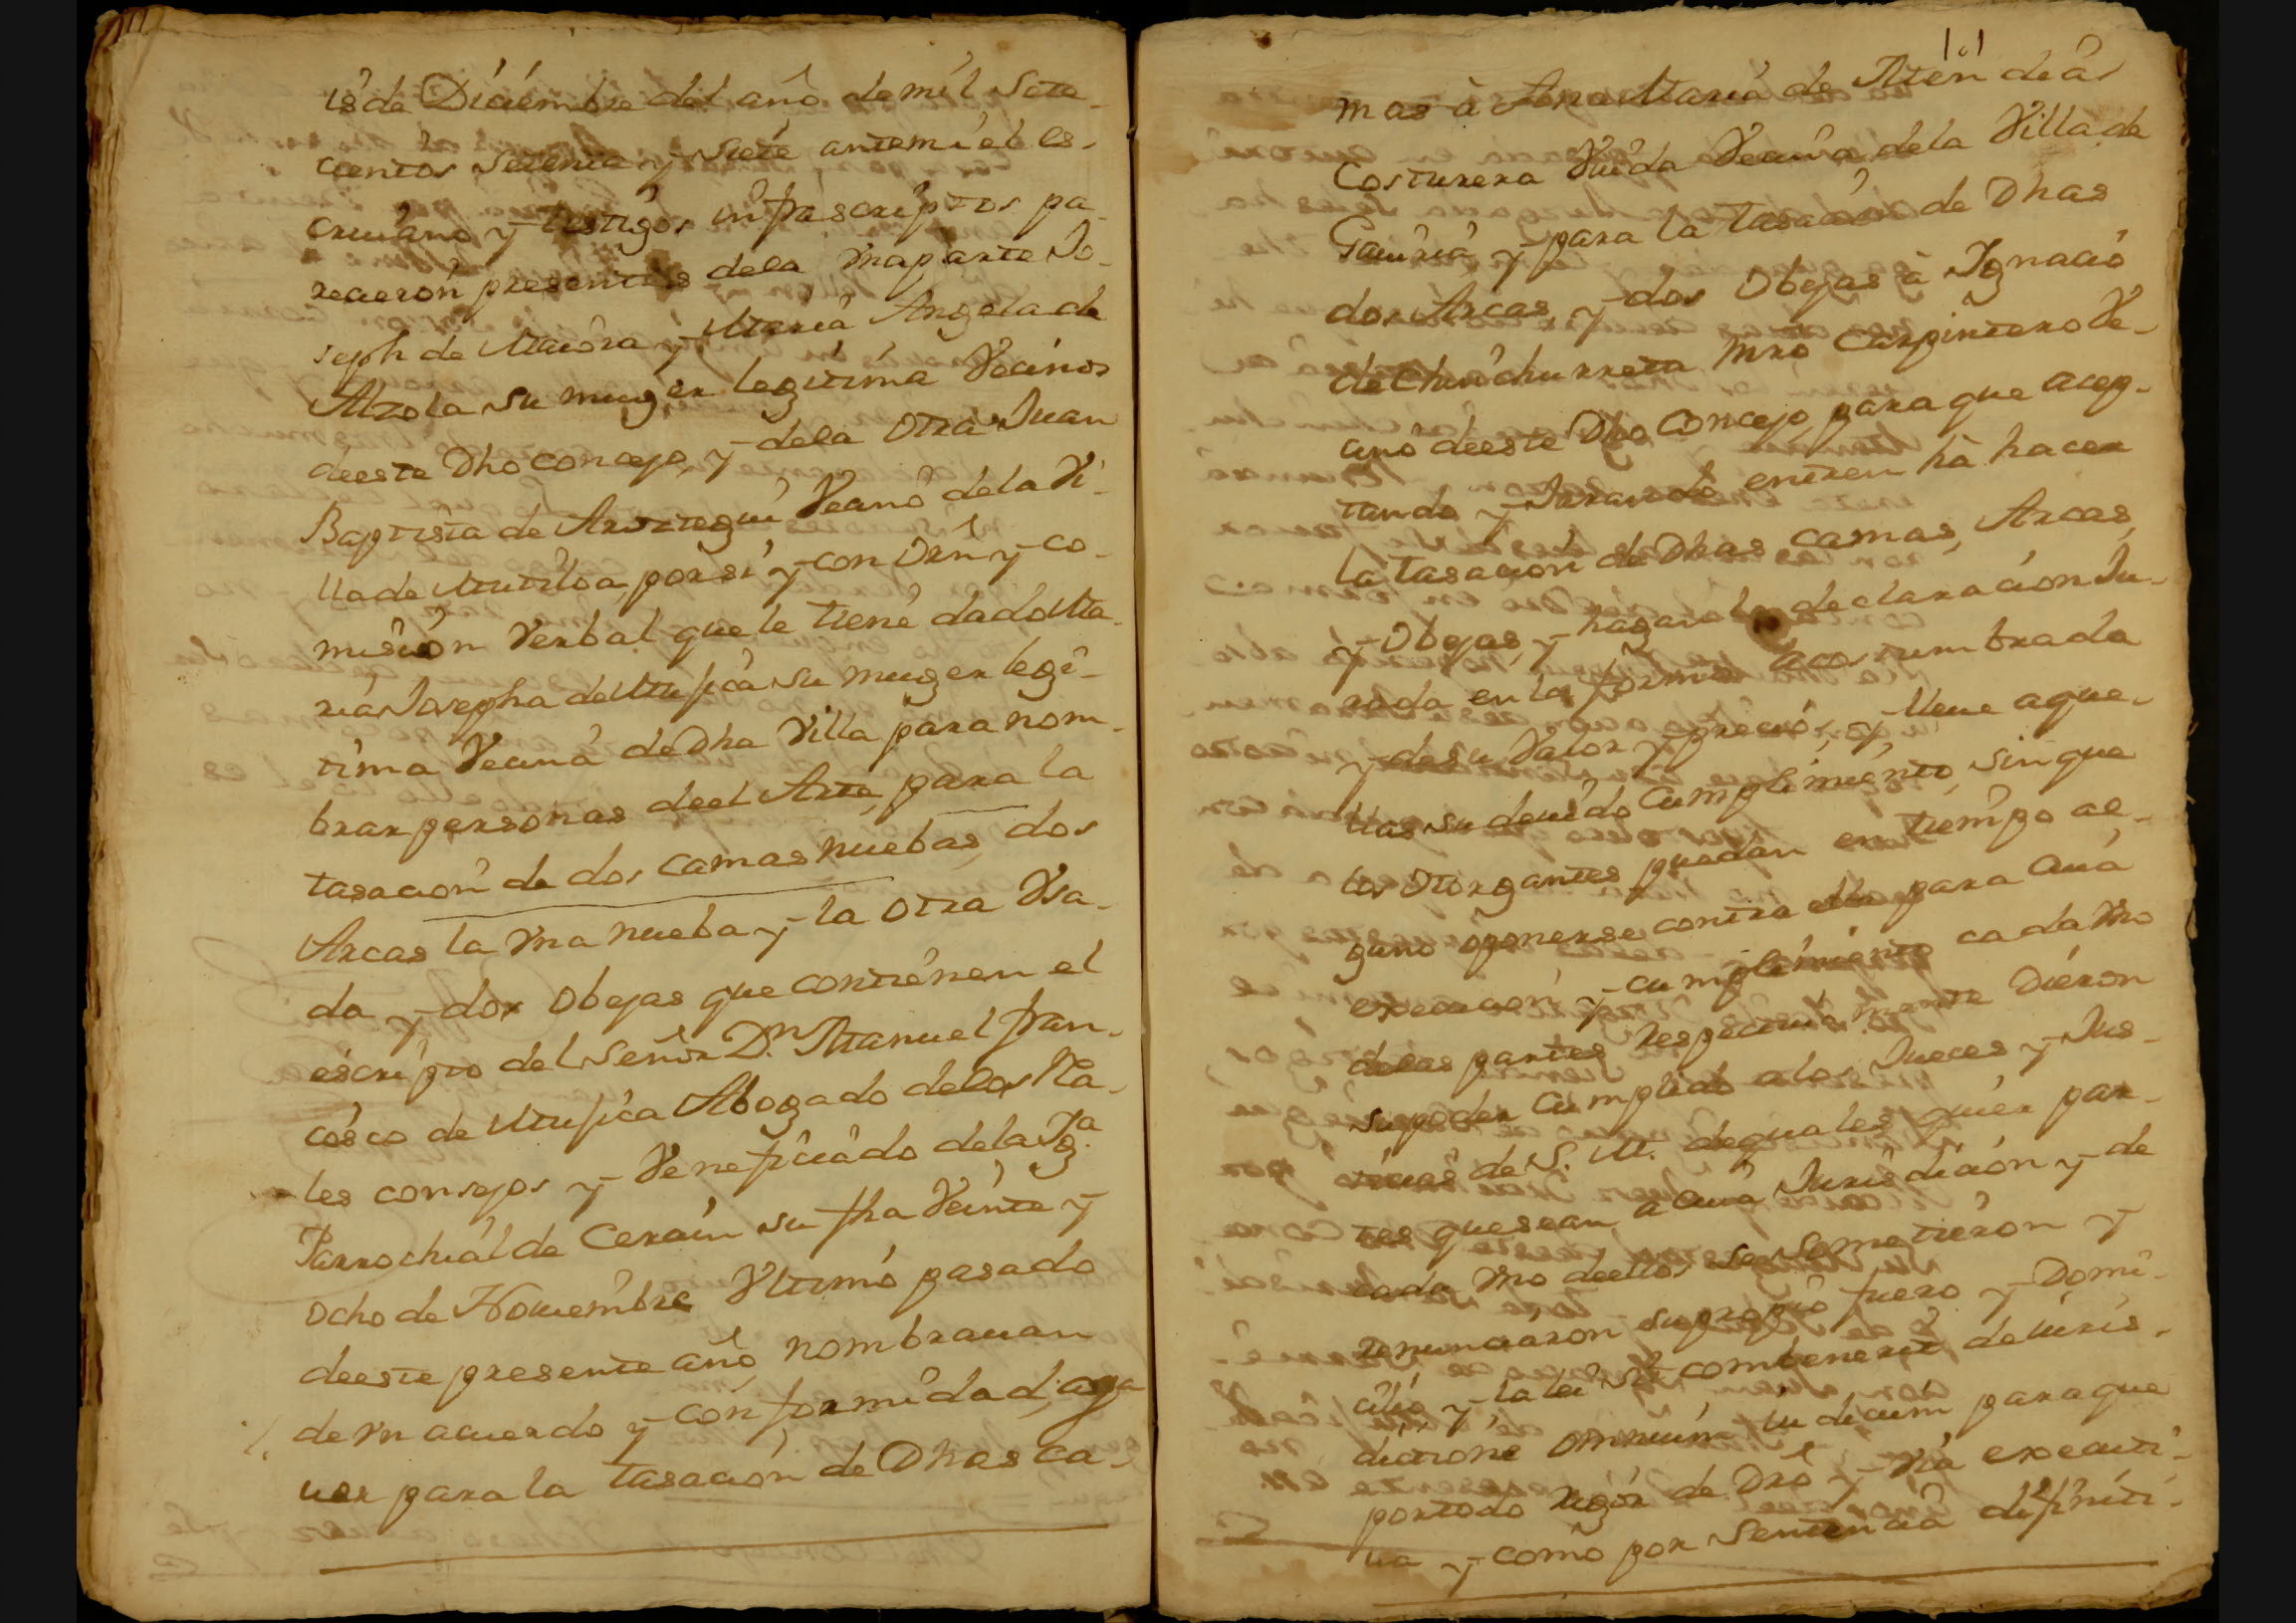 is de Diciembre del año de mil Sete-
cientos Setenta y Siete ante mi el es-
criuano y testigos infrascriptos pa-
recieron presentes dela vna parte Jo-
seph de Maiora y Maria Angela de
Alzola su muger legitima Vecinos
deeste Dho concejo, y dela otra Juan
Baptista de Aroztegui Vecino dela Vi-
lla de Mutiloa, por si y con orn y co-
mision Verbal que le tiene dado Ma-
ria Josepha de Mujica su muger legi-
tima Vecina de Dha Villa para nom-
brar personas deel Arte, para la
tasacion de dos camas nuebas, dos
Arcas la vna nueba y la otra Vsa-
da y dos Obejas que contienen el
escripto del Señor Dn. Manuel fran-
cisco de Mujica Abogado delos Rea-
les consejos y Veneficiado dela Yg.a
Parrochial de Cerain su fha Veinte y
ocho de Nouiembre Vltimo pasado
deeste presente año, nombrauan
de vn acuerdo y conformidad, a
uer para la tasacion de Dhas ca-
101
mas à Ana Maria de Aten de as
Costurera Viuda Vecina dela Villa de
Gauiria y para la tasacion de Dhas
dos Arcas, y dos Obejas à Ygnacio
de Chinchurreta Mro Carpintero Ve-
cino deeste Dho Concejo, para que acep-
tando y Jurando entren hà hacer
la tasacion de Dhas camas, Arcas,
y Obejas, y hagan la declaracion Ju-
rada en la forma acostumbrada
y de su Valor y precio, y lleue aque-
llas su deuido Cumplimiento, sin que
los Otorgantes puedan en tiempo al-
guno oponerse contra ella para cuia
execucion y cumplimiento cada vno
delas partes respectiuamente Dieron
su poder Cumplido a los Jueces y Jus-
ticias de S. M. de quales quier par-
tes que sean, a cuia Jurisdicion y de
cada vno deellos se Sometieron y
renunciaron su propio fuero y Domi-
cilio y la lei sit combenerit de iuris-
dictione omnium iudicum para que
por todo rigor de Dro y via executi-
ua y como por Sentencia difiniti-